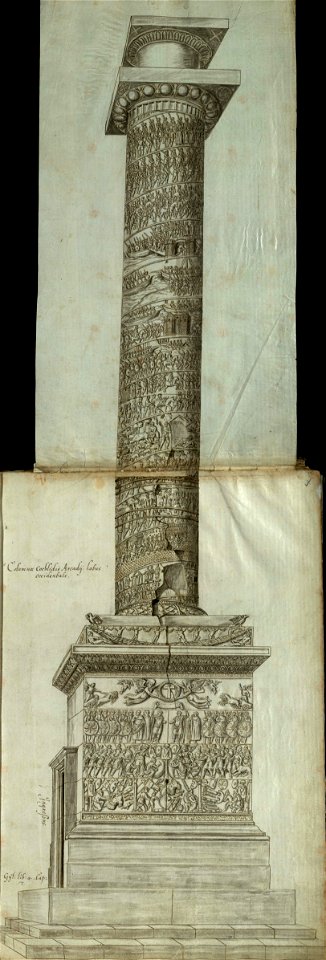 Columnæ Cochlidis Arcadij latus
occidentale.
Septentrio
Gyl. lib. 4. Cap:
7